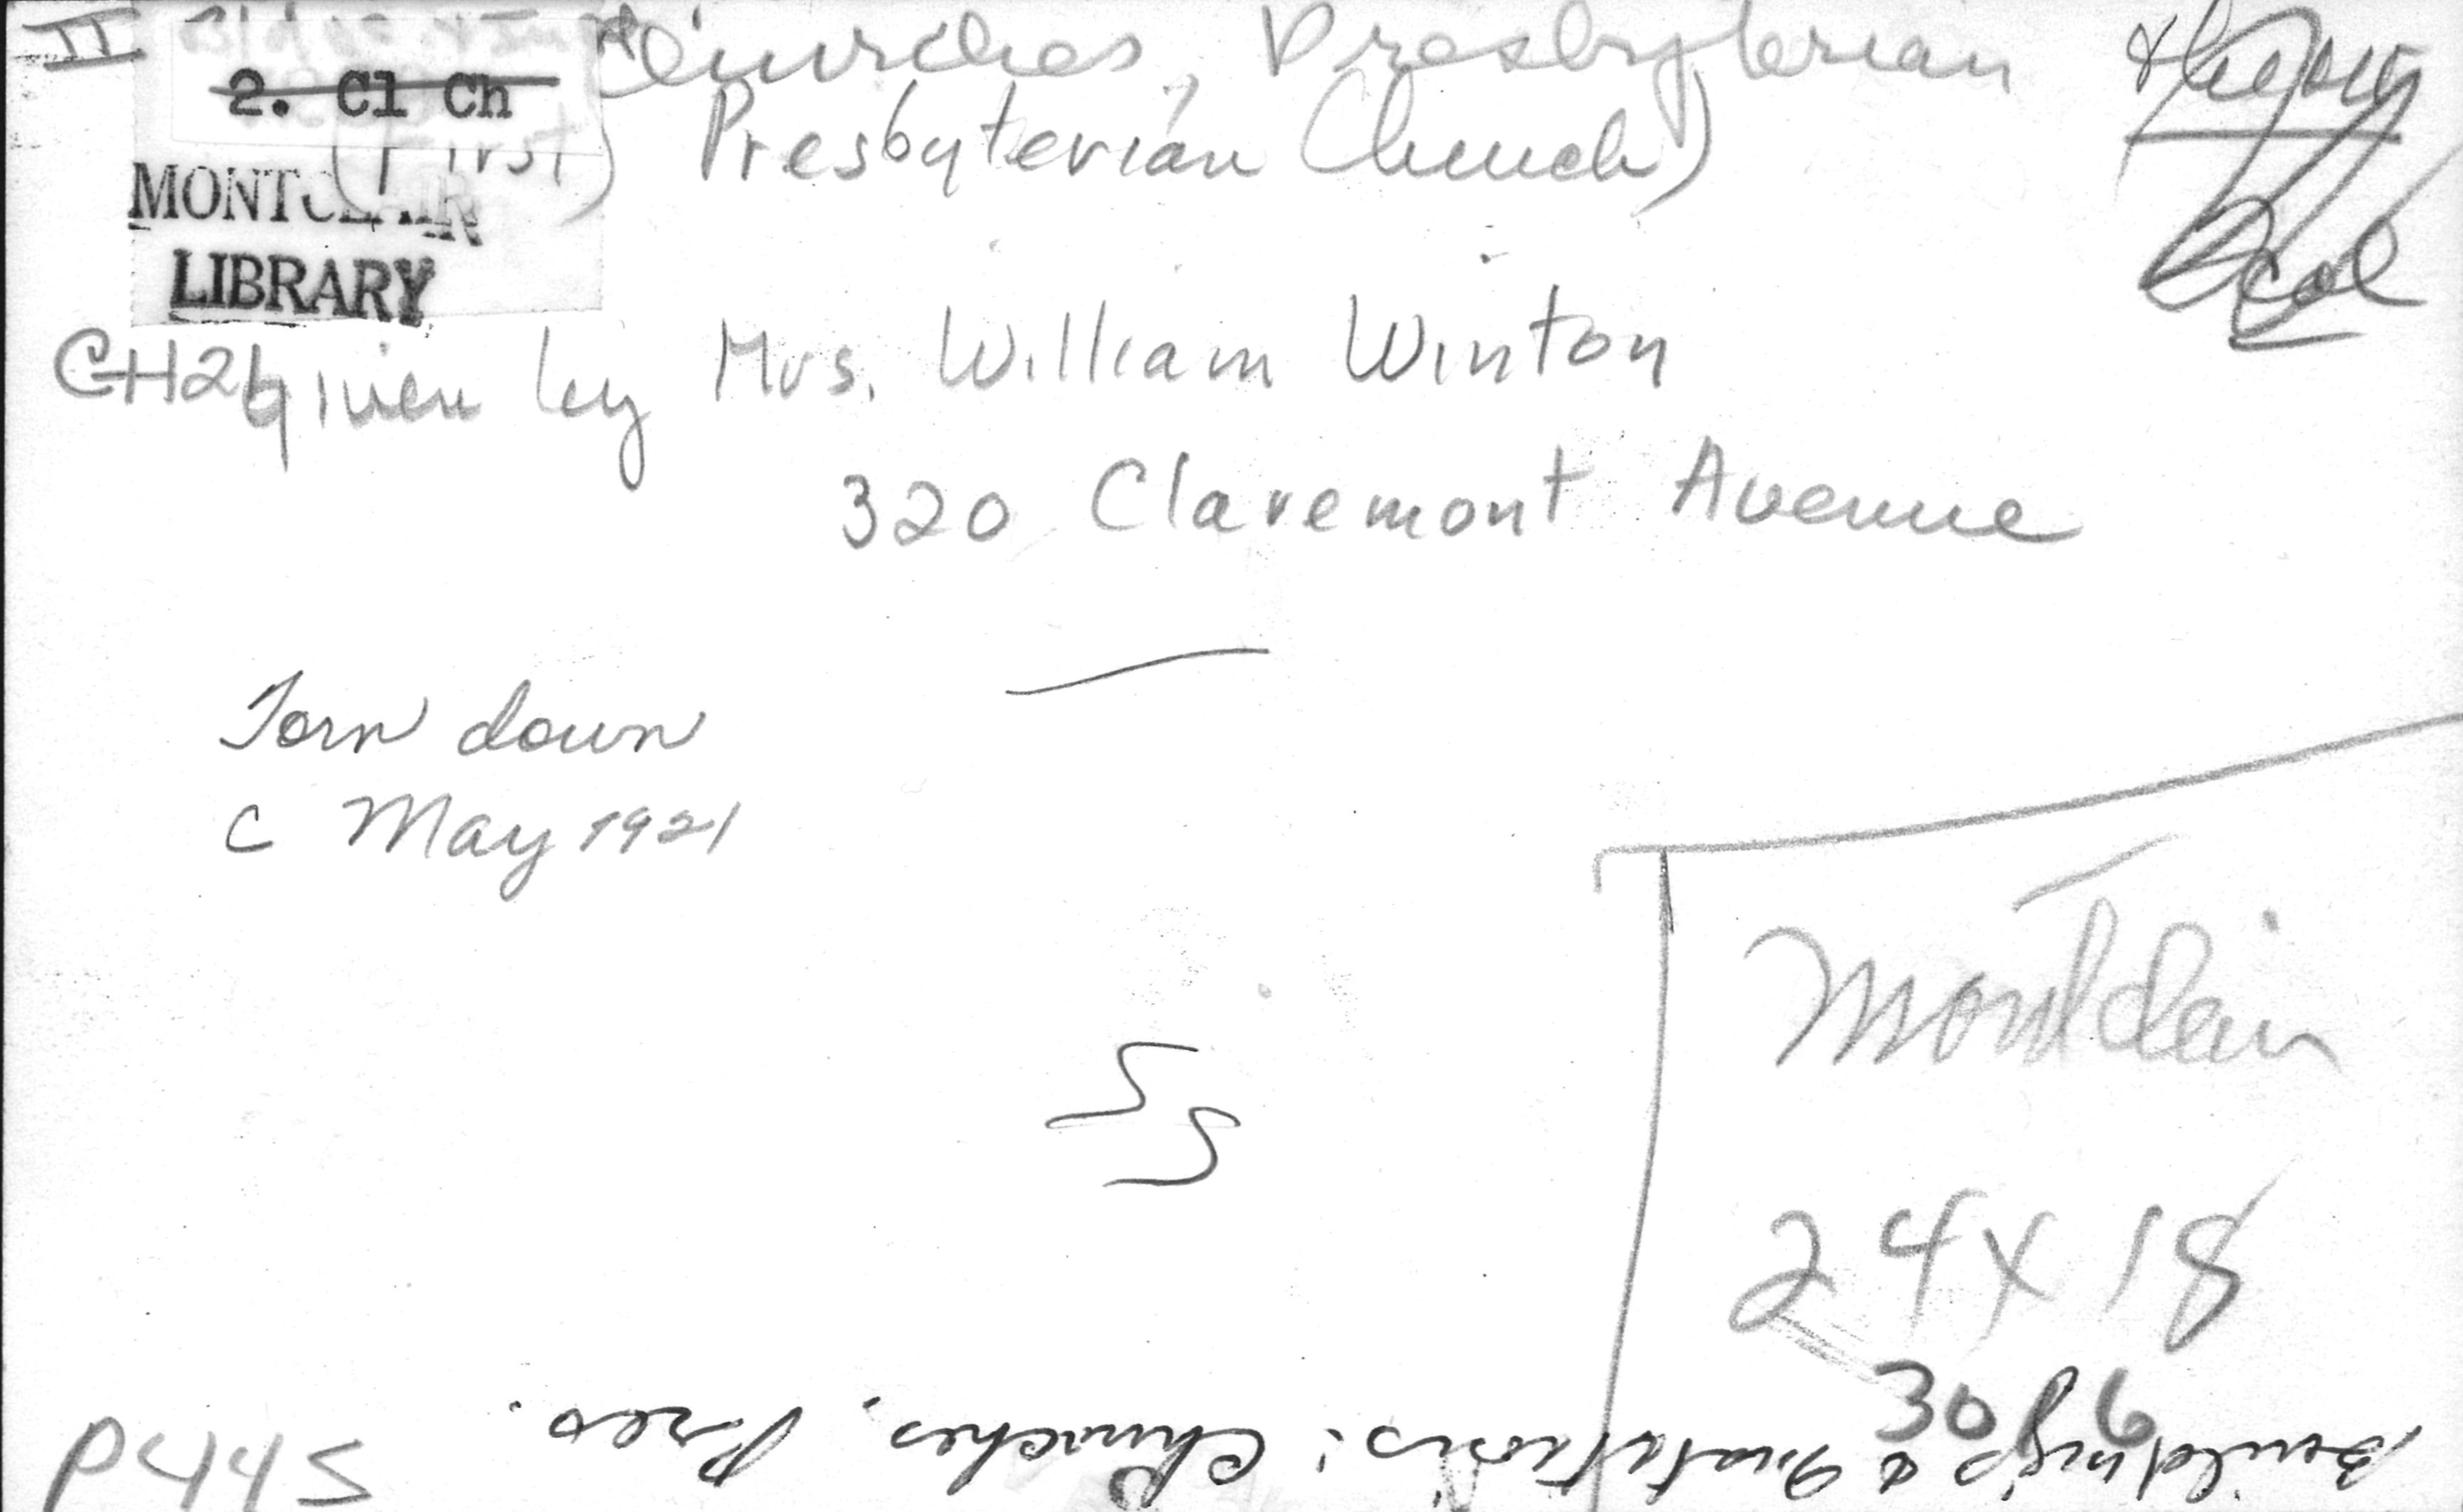 II
Churches, Presbyterian
2. Cl Ch
(First) Presbyterian Church)
MONTCLAIR
LIBRARY
CH2b
given by Mrs. William Winton
320 Claremont Avenue
Torn down
c May 1921
Montclair
24 x 18
30 p 6
P445
Buildings & Institutions: Churches, Pres.